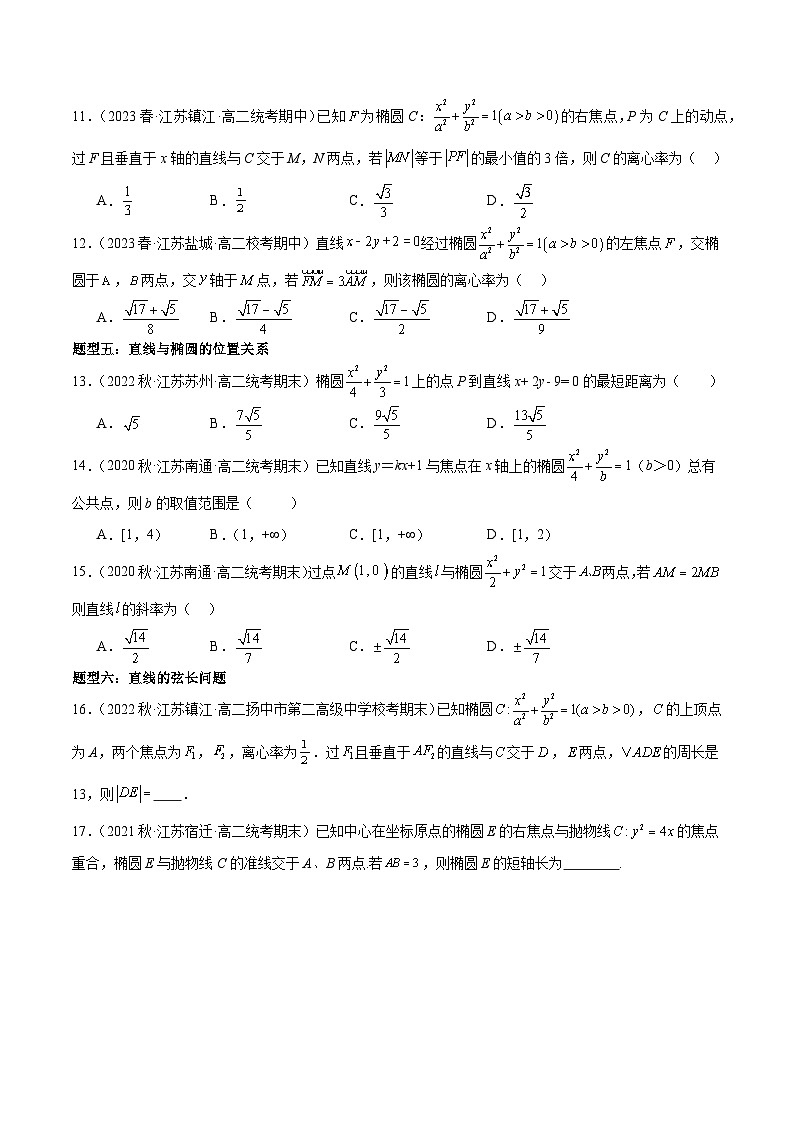 11.(2023春·江苏镇江·高二统考期中)已知F为椭圆C:x²/a²+y²/b²=1(a>b>0)的右焦点,P为C上的动点,
过F且垂直于x轴的直线与C交于M,N两点,若|MN|等于|PF|的最小值的3倍,则C的离心率为( )
A.1/3 B.1/2 C.√3/3 D.√3/2
12.(2023春·江苏盐城·高二校考期中)直线x-2y+2=0经过椭圆x²/a²+y²/b²=1(a>b>0)的左焦点F,交椭
圆于A,B两点,交y轴于M点,若FM=3AM,则该椭圆的离心率为( )
A.(√17+√5)/8 B.(√17-√5)/4 C.(√17-√5)/2 D.(√17+√5)/9
题型五:直线与椭圆的位置关系
13.(2022秋·江苏苏州·高二统考期末)椭圆x²/4+y²/3=1上的点P到直线x+ 2y - 9= 0的最短距离为( )
A.√5 B.7√5/5 C.9√5/5 D.13√5/5
14.(2020秋·江苏南通·高二统考期末)已知直线y=kx+1与焦点在x轴上的椭圆x²/4+y²/b=1(b>0)总有
公共点,则b的取值范围是( )
A.[1,4) B.(1,+∞) C.[1,+∞) D.[1,2)
15.(2020秋·江苏南通·高二统考期末)过点M(1,0)的直线l与椭圆x²/2+y²=1交于A、B两点,若AM=2MB
则直线l的斜率为( )
A.√14/2 B.√14/7 C.±√14/2 D.±√14/7
题型六:直线的弦长问题
16.(2022秋·江苏镇江·高二扬中市第二高级中学校考期末)已知椭圆C:x²/a²+y²/b²=1(a>b>0),C的上顶点
为A,两个焦点为F₁,F₂,离心率为1/2.过F₁且垂直于AF₂的直线与C交于D,E两点,∨ADE的周长是
13,则|DE|=____.
17.(2021秋·江苏宿迁·高二统考期末)已知中心在坐标原点的椭圆E的右焦点与抛物线C:y²=4x的焦点
重合,椭圆E与抛物线C的准线交于A、B两点.若AB=3,则椭圆E的短轴长为________.